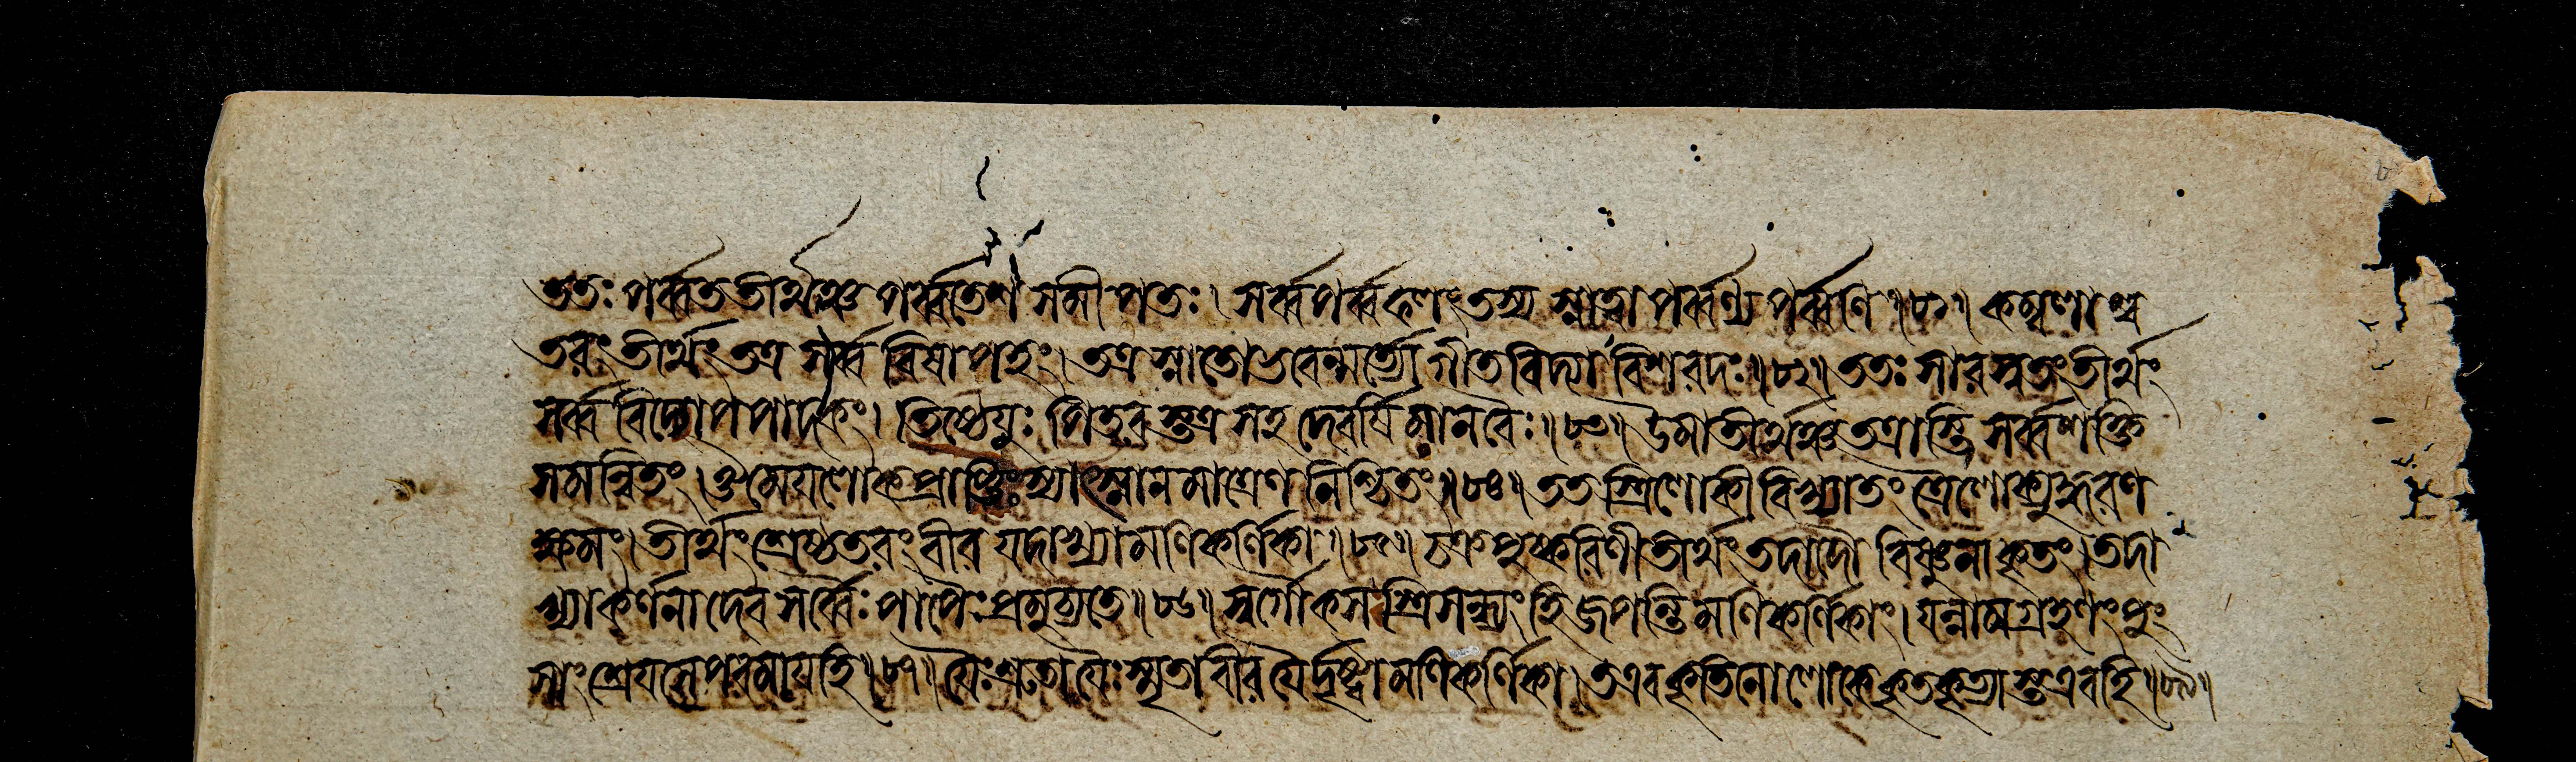 ততঃ পর্ব্বততীর্থঞ্চ পর্ব্বতেশ সমীপতঃ। সর্ব্বপর্ব্বফলং তস্য স্নাত্বা পর্ব্বণ্যপর্ব্বণি॥৮১॥ কম্বলাশ্ব
তরং তীর্থং তত্র সর্ব্ববিষাপহং। তত্র স্নাতো ভবেন্মর্ত্যো গীতবিদ্যাবিশারদঃ॥৮২॥ ততঃ সারস্বতং তীর্থং
সর্ব্ববিদ্যোপপাদকং। তিষ্ঠেয়ুঃ পিতরস্তত্র সহ দেবর্ষিমানবৈঃ॥৮৩॥ উমাতীর্থঞ্চ তত্রাস্তি সর্ব্বশক্তি
সমন্বিতং। ঔমেয়লোকপ্রাপ্তিঃ স্যাৎ স্নানমাত্রেণ নিশ্চিতং॥৮৪॥ ততস্ত্রিলোকী বিখ্যাতং ত্রৈলোক্যুদ্ধরণ
ক্ষমং। তীর্থং শ্রেষ্ঠতরং বীর যদাখ্যা মণিকর্ণিকা॥৮৫॥ চক্রপুষ্করিণীতীর্থং তদাদৌ বিষ্ণুনা কৃতং। তদা
খ্যাকর্ণনাদেব সর্ব্বৈঃ পাপৈঃ প্রমুচ্যতে॥৮৬॥ স্বর্গৌকসস্ত্রিসন্ধ্যং হি জপন্তি মণিকর্ণিকাং। যন্নামগ্রহণং পুং
সাং শ্রেয়সে পরমায় হি॥৮৭॥ যৈঃ শ্রুতা যৈঃ স্মৃতা বীর যৈর্দৃষ্টা মণিকর্ণিকা। তএব কৃতিনো লোকে কৃতকৃত্যাস্তএব হি॥৮৮॥